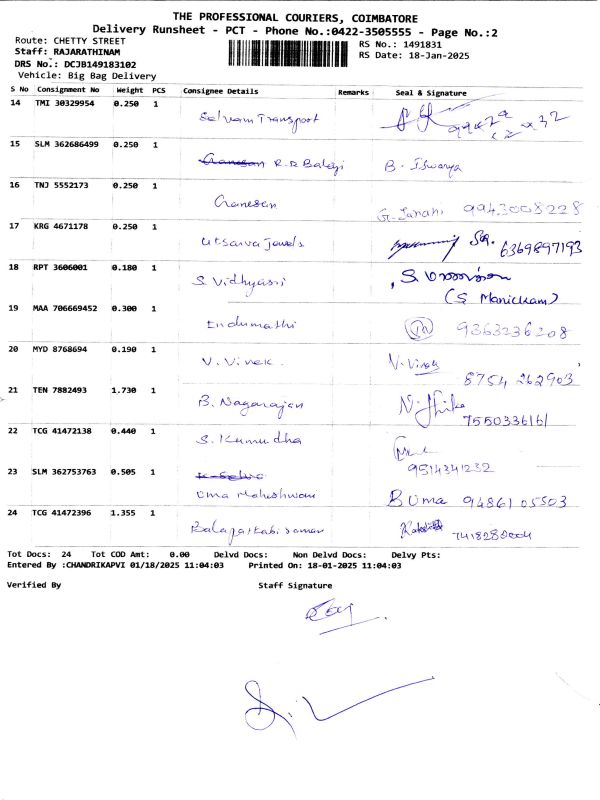 THE PROFESSIONAL COURIERS, COIMBATORE
Delivery Runsheet - PCT - Phone No.:0422-3505555 - Page No.:2
Route: CHETTY STREET
Staff: RAJARATHINAM
DRS No.: DCJB149183102
Vehicle: Big Bag Delivery
RS No.: 1491831
RS Date: 18-Jan-2025
S No Consignment No Weight PCS Consignee Details Remarks Seal & Signature
14 TMI 30329954 0.250 1 Selvam Transport
15 SLM 362686499 0.250 1 Ganesan R.R Balaji B. Iswarya
16 TNJ 5552173 0.250 1 Ganesan G. Janani 9943008228
17 KRG 4671178 0.250 1 Utsarva jewels 6369897193
18 RPT 3606001 0.180 1 S. Vidhyasri S. மாணிக்கம்
(S Manickam)
19 MAA 706669452 0.300 1 Endumathi 9363236208
20 MYD 8768694 0.190 1 V. Vivek. V. Vivek
8754 262903
21 TEN 7882493 1.730 1 B. Nagarajan
7550336161
22 TCG 41472138 0.440 1 S. Kumudha
9514341232
23 SLM 362753763 0.505 1 K. Selva
Uma Maheshwari B Uma 9486105503
24 TCG 41472396 1.355 1 7418280004
Tot Docs: 24 Tot COD Amt: 0.00 Delvd Docs: Non Delvd Docs: Delvy Pts:
Entered By :CHANDRIKAPVI 01/18/2025 11:04:03 Printed On: 18-01-2025 11:04:03
Verified By Staff Signature